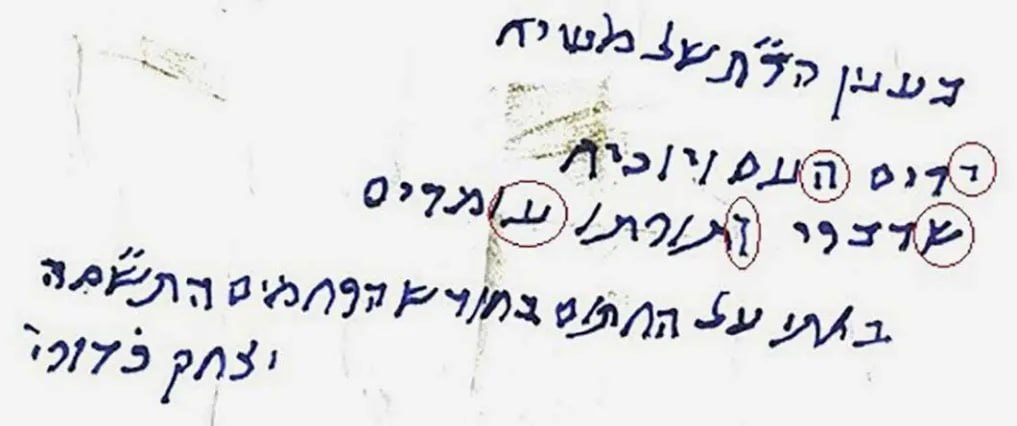 בענין הר"ת של משיח
ירים העם ויוכיח
שדברו ותורתו עומדים
באתי על החתום בחודש הרחמים התש"סה
יצחק כדורי